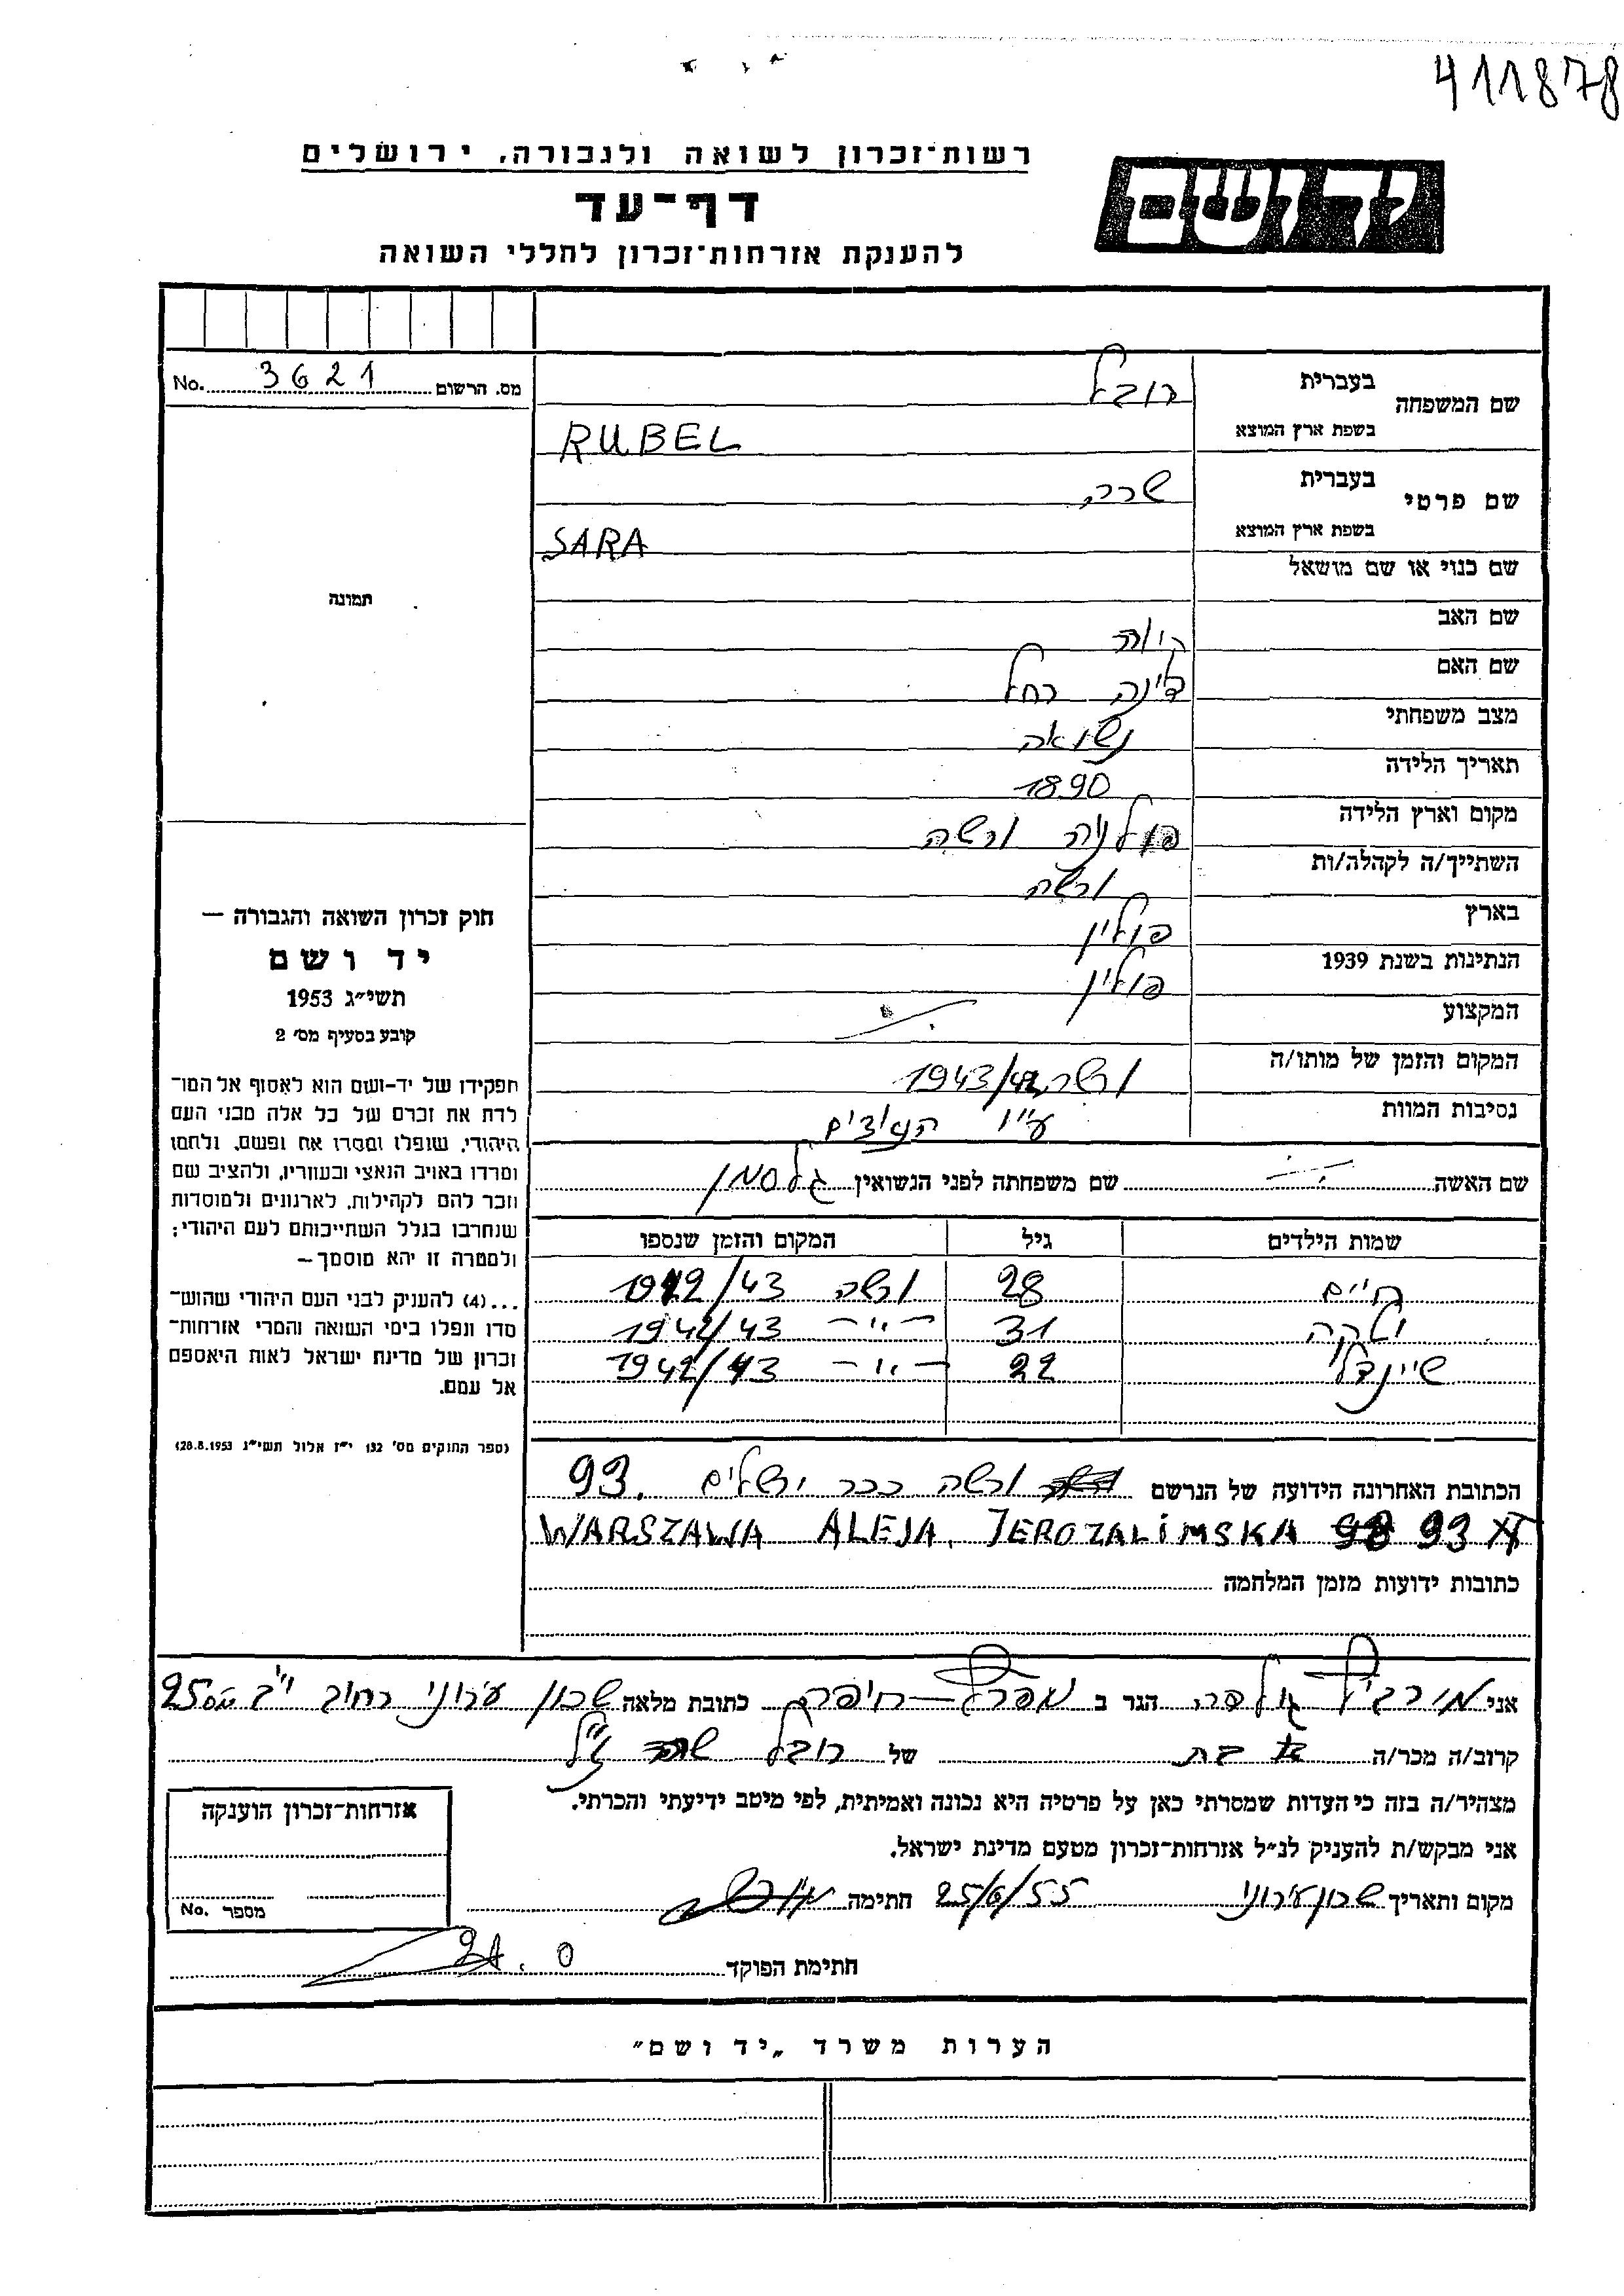 411878
רשות־זכרון לשואה ולגבורה, ירושלים
יד ושם
דף־עד
להענקת אזרחות־זכרון לחללי השואה
No. 3621 מס. הרשום
שם המשפחה בעברית רובל
בשפת ארץ המוצא RUBEL
שם פרטי בעברית שרה
בשפת ארץ המוצא SARA
שם כנוי או שם מושאל
תמונה
שם האב
שם האם דינה רחל
מצב משפחתי נשואה
תאריך הלידה 1890
מקום וארץ הלידה פולניה ורשה
השתייך/ה לקהלה/ות ורשה
בארץ פולין
הנתינות בשנת 1939 פולין
המקצוע
המקום והזמן של מותו/ה ורשה 1943/42
נסיבות המוות ע"י הנאצים
שם האשה שם משפחתה לפני הנשואין גלסמן
שמות הילדים גיל המקום והזמן שנספו
חיים 28 ורשה 1942/43
31 -"- 1942/43
שיינדל 22 -"- 1942/43
הכתובת האחרונה הידועה של הנרשם ורשה ככר ירושלים 93.
WARSZAWA ALEJA. JEROZALIMSKA 93
כתובות ידועות מזמן המלחמה
חוק זכרון השואה והגבורה —
יד ושם
תשי"ג 1953
קובע בסעיף מס' 2
תפקידו של יד-ושם הוא לאסוף אל המו־
לדת את זכרם של כל אלה מבני העם
היהודי, שנפלו ומסרו את נפשם, נלחמו
ומרדו באויב הנאצי ובעוזריו, ולהציב שם
וזכר להם לקהילות, לארגונים ולמוסדות
שנחרבו בגלל השתייכותם לעם היהודי;
ולמטרה זו יהא מוסמך—
...(4) להעניק לבני העם היהודי שהוש־
מדו ונפלו בימי השואה והמרי אזרחות־
זכרון של מדינת ישראל לאות היאספם
אל עמם.
(ספר החוקים מס' 132 י"ז אלול תשי"ג 28.8.1953)
אני הגר ב חיפה כתובת מלאה שכון עירוני רחוב י"ב 250
קרוב/ה מכר/ה בת של רובל שרה ז"ל
מצהיר/ה בזה כי העדות שמסרתי כאן על פרטיה היא נכונה ואמיתית, לפי מיטב ידיעתי והכרתי.
אני מבקש/ת להעניק לנ"ל אזרחות־זכרון מטעם מדינת ישראל.
מקום ותאריך שכון עירוני 25/6/55 חתימה
חתימת הפוקד
אזרחות־זכרון הוענקה
No. מספר
הערות משרד „יד ושם"